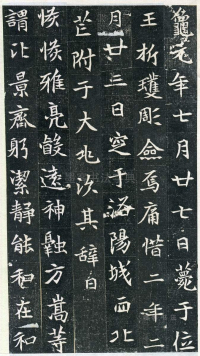 龜元年七月廿七日薨于位
王折瓊彫僉焉痛惜二年二
月廿三日窆于洛陽城西北
芒附于大兆次其辞曰
雅亮遠神融方嵩等
比景齊躬潔靜能和在和